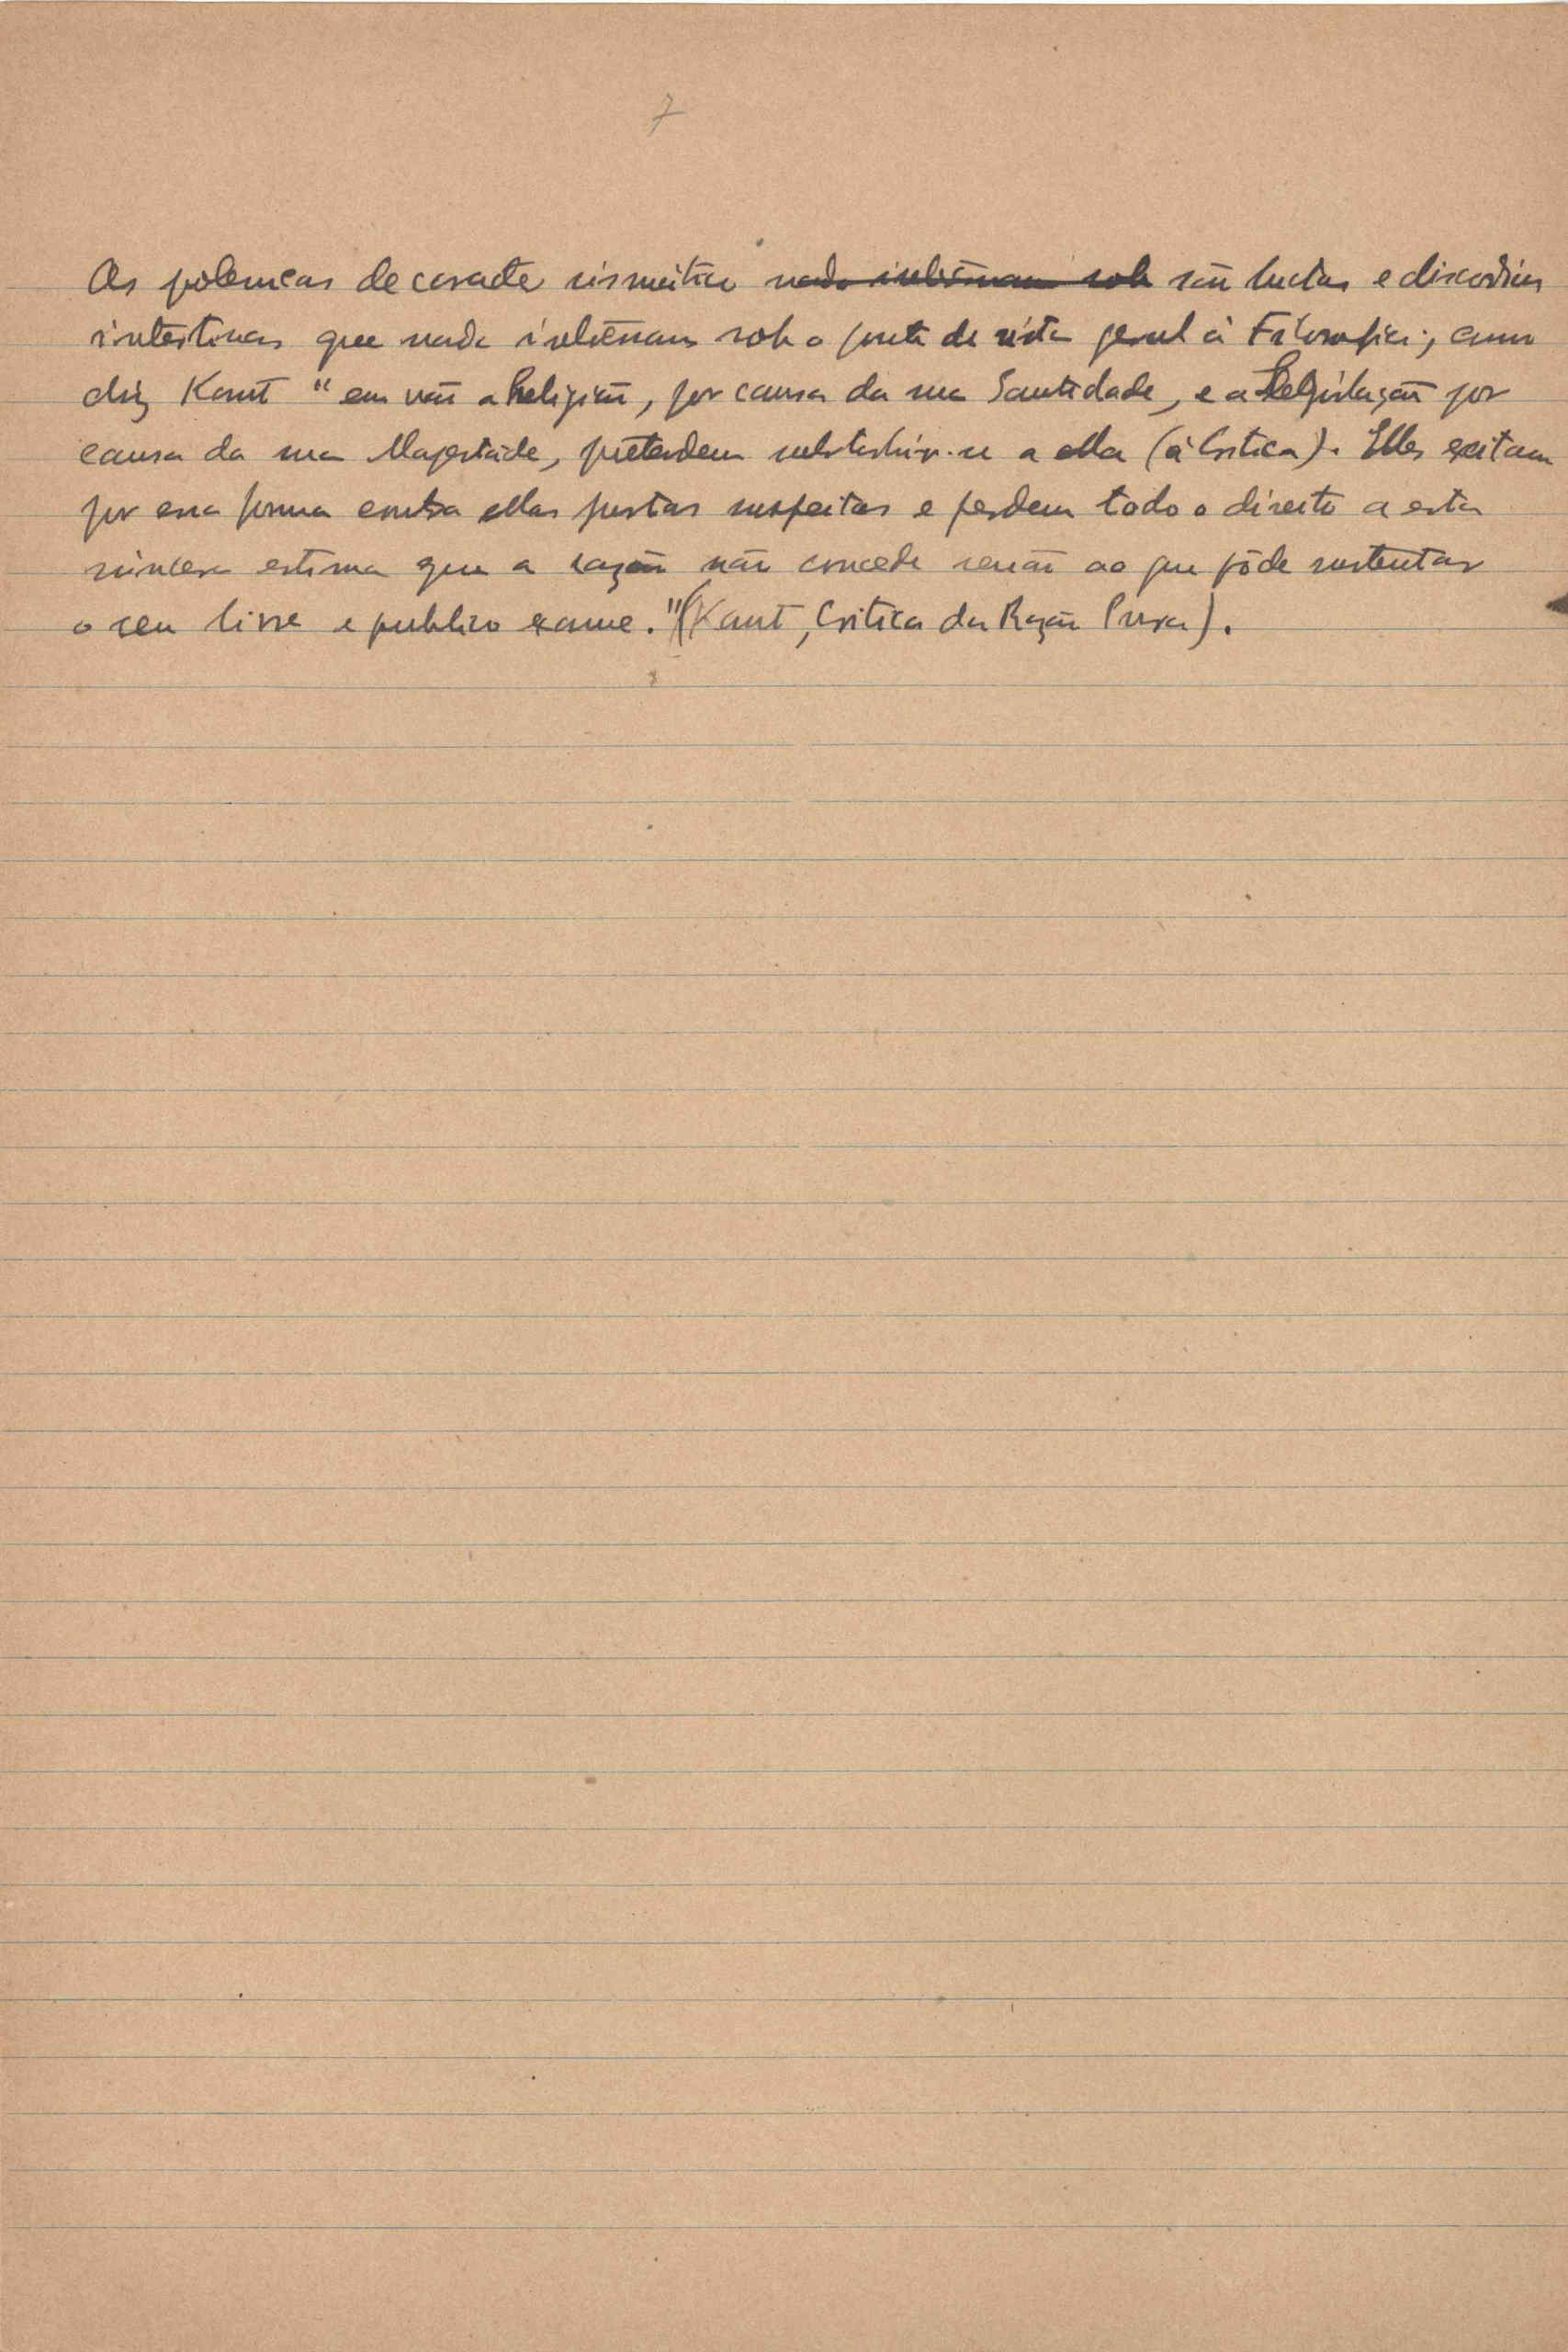 7
As polemicas de caracter cismatico ~~nada interessam sob~~ são luctas e discordias
intestinas que nada interessam sob o ponto de vista geral à Filosofia; como
diz Kant "em vão a Religião, por causa da sua Santidade, e a Legislação por
causa da sua Majestade, pretendem subtrahir-se a ella (à Critica). Elles excitam
por essa forma contra ellas justas suspeitas e perdem todo o direito a esta
sincera estima que a razão não concede senão ao que póde sustentar
o seu livre e publico exame." (Kant, Critica da Razão Pura).